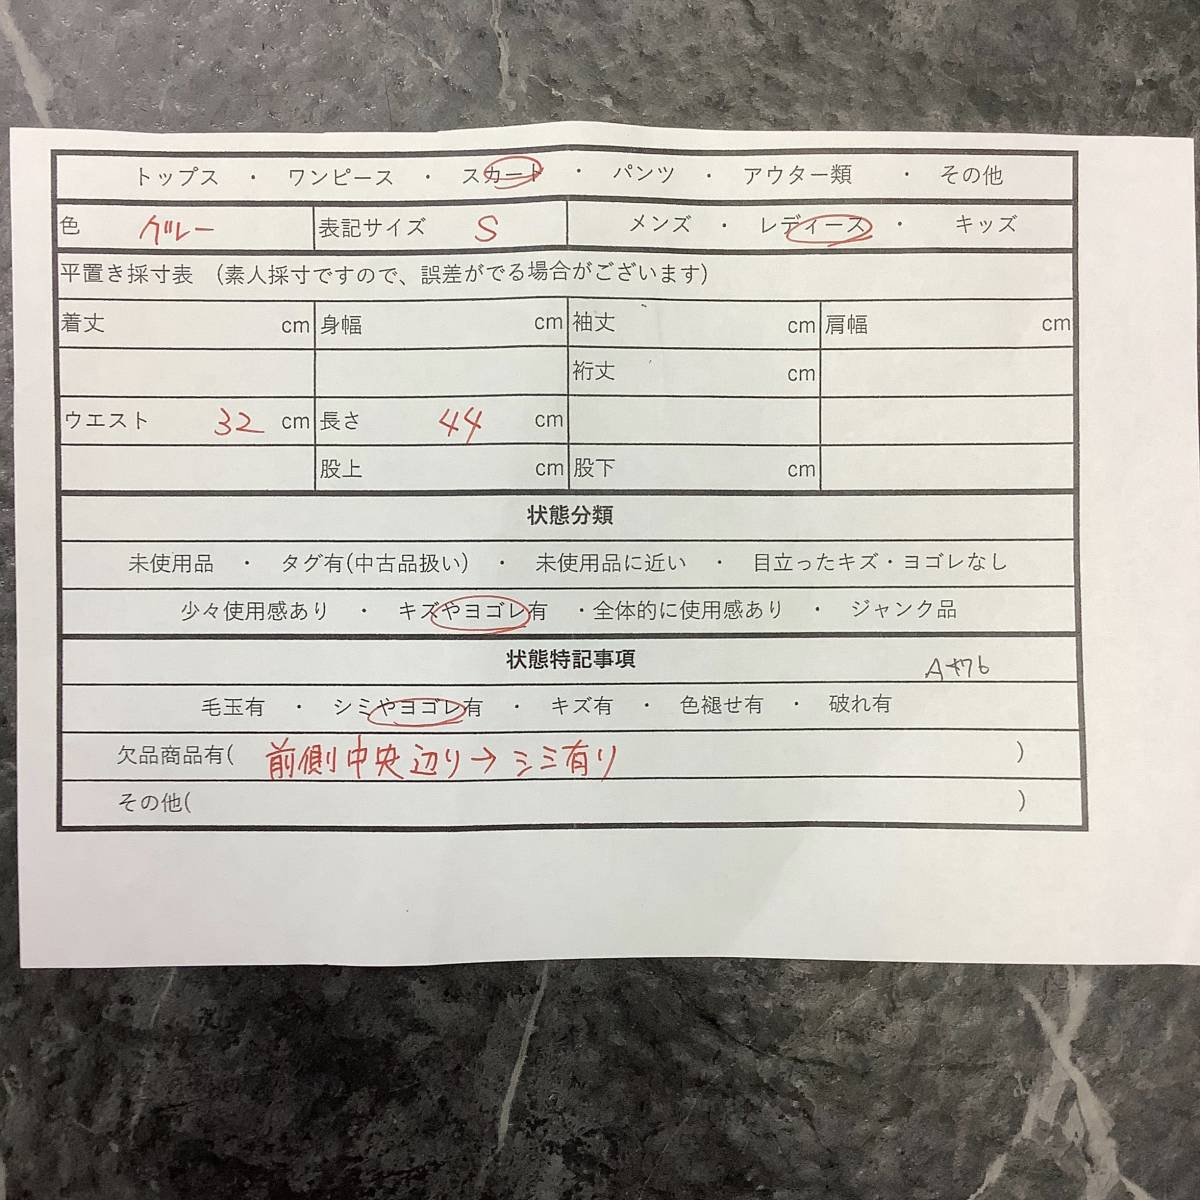 トップス ・ ワンピース ・ スカート ・ パンツ ・ アウター類 ・ その他
色 グレー 表記サイズ S メンズ ・ レディース ・ キッズ
平置き採寸表 (素人採寸ですので、誤差がでる場合がございます)
着丈 cm 身幅 cm 袖丈 cm 肩幅 cm
裄丈 cm
ウエスト 32 cm 長さ 44 cm
股上 cm 股下 cm
状態分類
未使用品 ・ タグ有(中古品扱い) ・ 未使用品に近い ・ 目立ったキズ・ヨゴレなし
少々使用感あり ・ キズやヨゴレ有 ・全体的に使用感あり ・ ジャンク品
状態特記事項
毛玉有 ・ シミやヨゴレ有 ・ キズ有 ・ 色褪せ有 ・ 破れ有
欠品商品有( 前側中央辺り→シミ有り )
その他( )